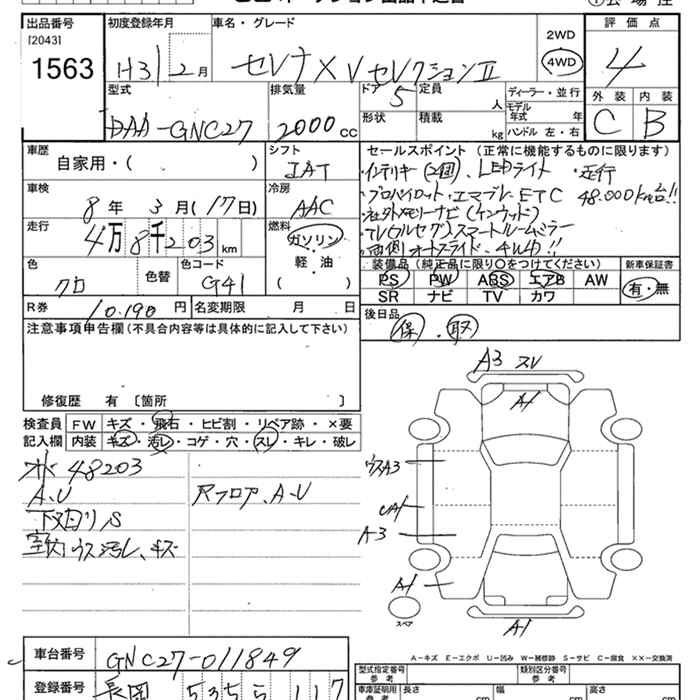 出品番号 初度登録年月 車名・グレード 2WD 評価点
[2043]
1563 H31 2月 セレナ X Vセレクション II 4WD 4
型式 排気量 ドア 5 定員 人 ディーラー・並行 外装 内装
DAA-GNC27 2000cc 形状 積載 kg モデル年式 年 ハンドル 左・右 C B
車歴 シフト セールスポイント (正常に機能するものに限ります)
自家用・( ) IAT ・インテリキー(2個)、LEDライト ・走行
車検 冷房 ・プロパイロット・エマブレ・ETC 48.000K台!!
8年 3月(17日) AAC ・社外メモリーナビ(ケンウッド)
走行 燃料 ・フルセグ、スマートルームミラー
4万8千203km ガソリン ・両側オートスライド、4WD!!
軽・油
( )
色 色替 色コード 装備品 (純正品に限り○をつけてください) 新車保証書
クロ G41 PS PW ABS エアB AW 有・無
SR ナビ TV カワ
R券 10.190円 名変期限 月 日 後日品
注意事項申告欄(不具合内容等は具体的に記入して下さい) 保・取
修復歴 有 [箇所 ]
検査員 FW キズ・飛石・ヒビ割・リペア跡・×要
記入欄 内装 キズ・汚レ・コゲ・穴・スレ・キレ・破レ
A3 スレ
A1
メ 48203
A.U Rフロア、A-U
下廻りS
室内ウス汚レ、キズ
ウスA3
UA1
A-3
A1
スペア
A1
A-キズ E-エクボ U-凹み W-補修跡 S-サビ C-腐食 ××-交換済
車台番号 GNC27-011849
型式指定番号 類別区分番号
参考 参考
登録番号 長岡 535 5 117
車庫証明用 長さ 幅 高さ
参考 cm cm cm